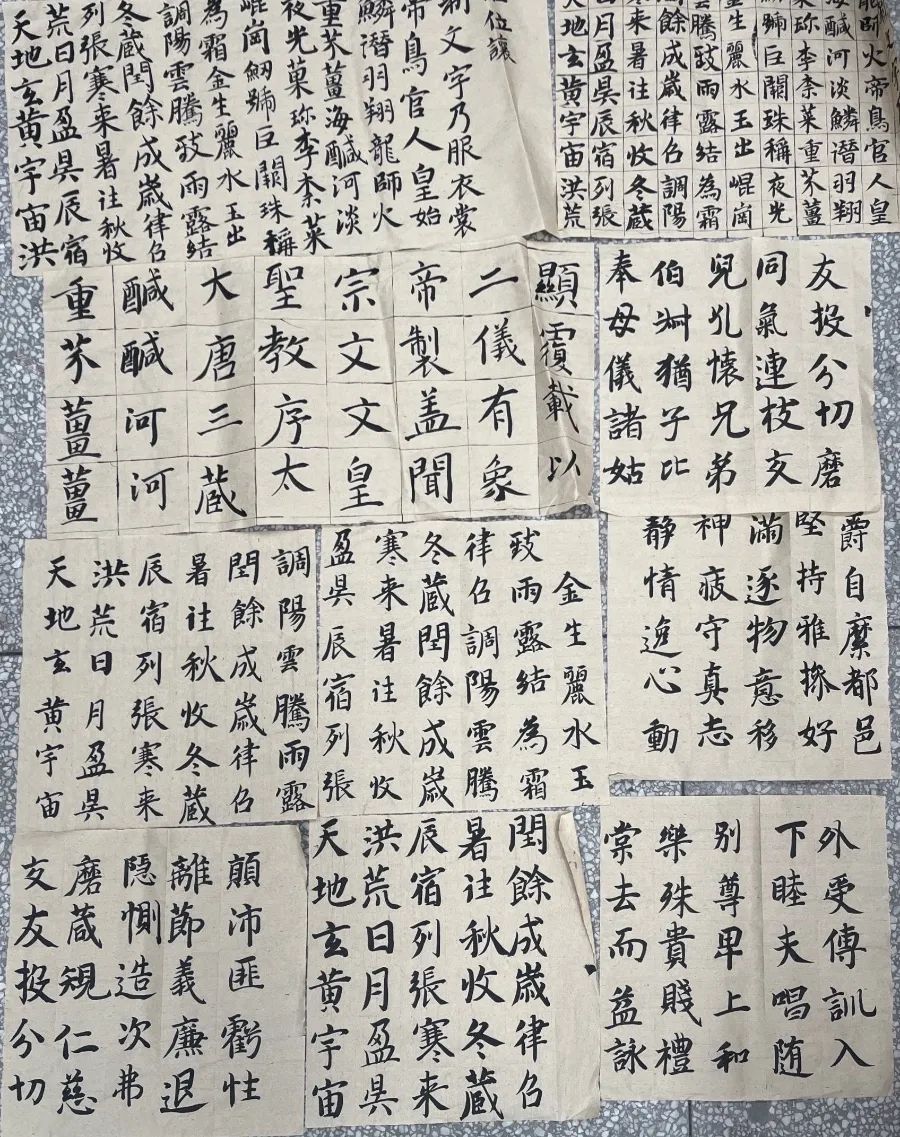 位讓
制文字乃服衣裳
帝鳥官人皇始
鱗潛羽翔龍師火
重芥薑海鹹河淡
夜光菓珍李柰菜
崐崗劒號巨闕珠稱
為霜金生麗水玉出
調陽雲騰致雨露結
冬藏閏餘成歲律召
列張寒来暑往秋收
荒日月盈昃辰宿
天地玄黄宇宙洪
師火帝鳥官人皇
海鹹河淡鱗潛羽翔
珍李柰菜重芥薑
號巨闕珠稱夜光
生麗水玉出崐崗
雲騰致雨露結為霜
餘成歲律召調陽
来暑往秋收冬藏
月盈昃辰宿列張
地玄黄宇宙洪荒
顯覆載以
二儀有象
帝製盖聞
宗文文皇
聖教序太
大唐三藏
鹹鹹河河
重芥薑薑
友投分切磨
同氣連枝交
兒孔懷兄弟
伯叔猶子比
奉母儀諸姑
爵自縻都邑
堅持雅操好
滿逐物意移
神疲守真志
静情逸心動
調陽雲騰雨露
閏餘成歲律召
暑往秋收冬藏
辰宿列張寒来
洪荒日月盈昃
天地玄黄宇宙
金生麗水玉
致雨露結為霜
律召調陽雲騰
冬藏閏餘成歲
寒来暑往秋收
盈昃辰宿列張
顛沛匪虧性
離節義廉退
隐惻造次弗
磨箴規仁慈
交友投分切
閏餘成歲律召
暑往秋收冬藏
辰宿列張寒来
洪荒日月盈昃
天地玄黄宇宙
外受傅訓入
下睦夫唱随
别尊卑上和
樂殊貴賤禮
棠去而益詠